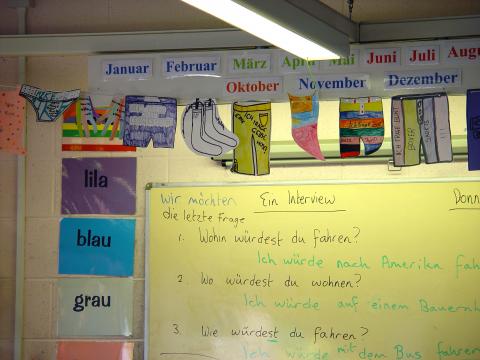 Januar Februar März April Mai Juni Juli Augu
Oktober November Dezember
lila
blau
grau
Wir möchten Ein Interview Donn
die letzte Frage
1. Wohin würdest du fahren?
Ich würde nach Amerika fah
2. Wo würdest du wohnen?
Ich würde auf einem Bauernh
3. Wie würdest du fahren?
Ich würde mit dem Bus fahren